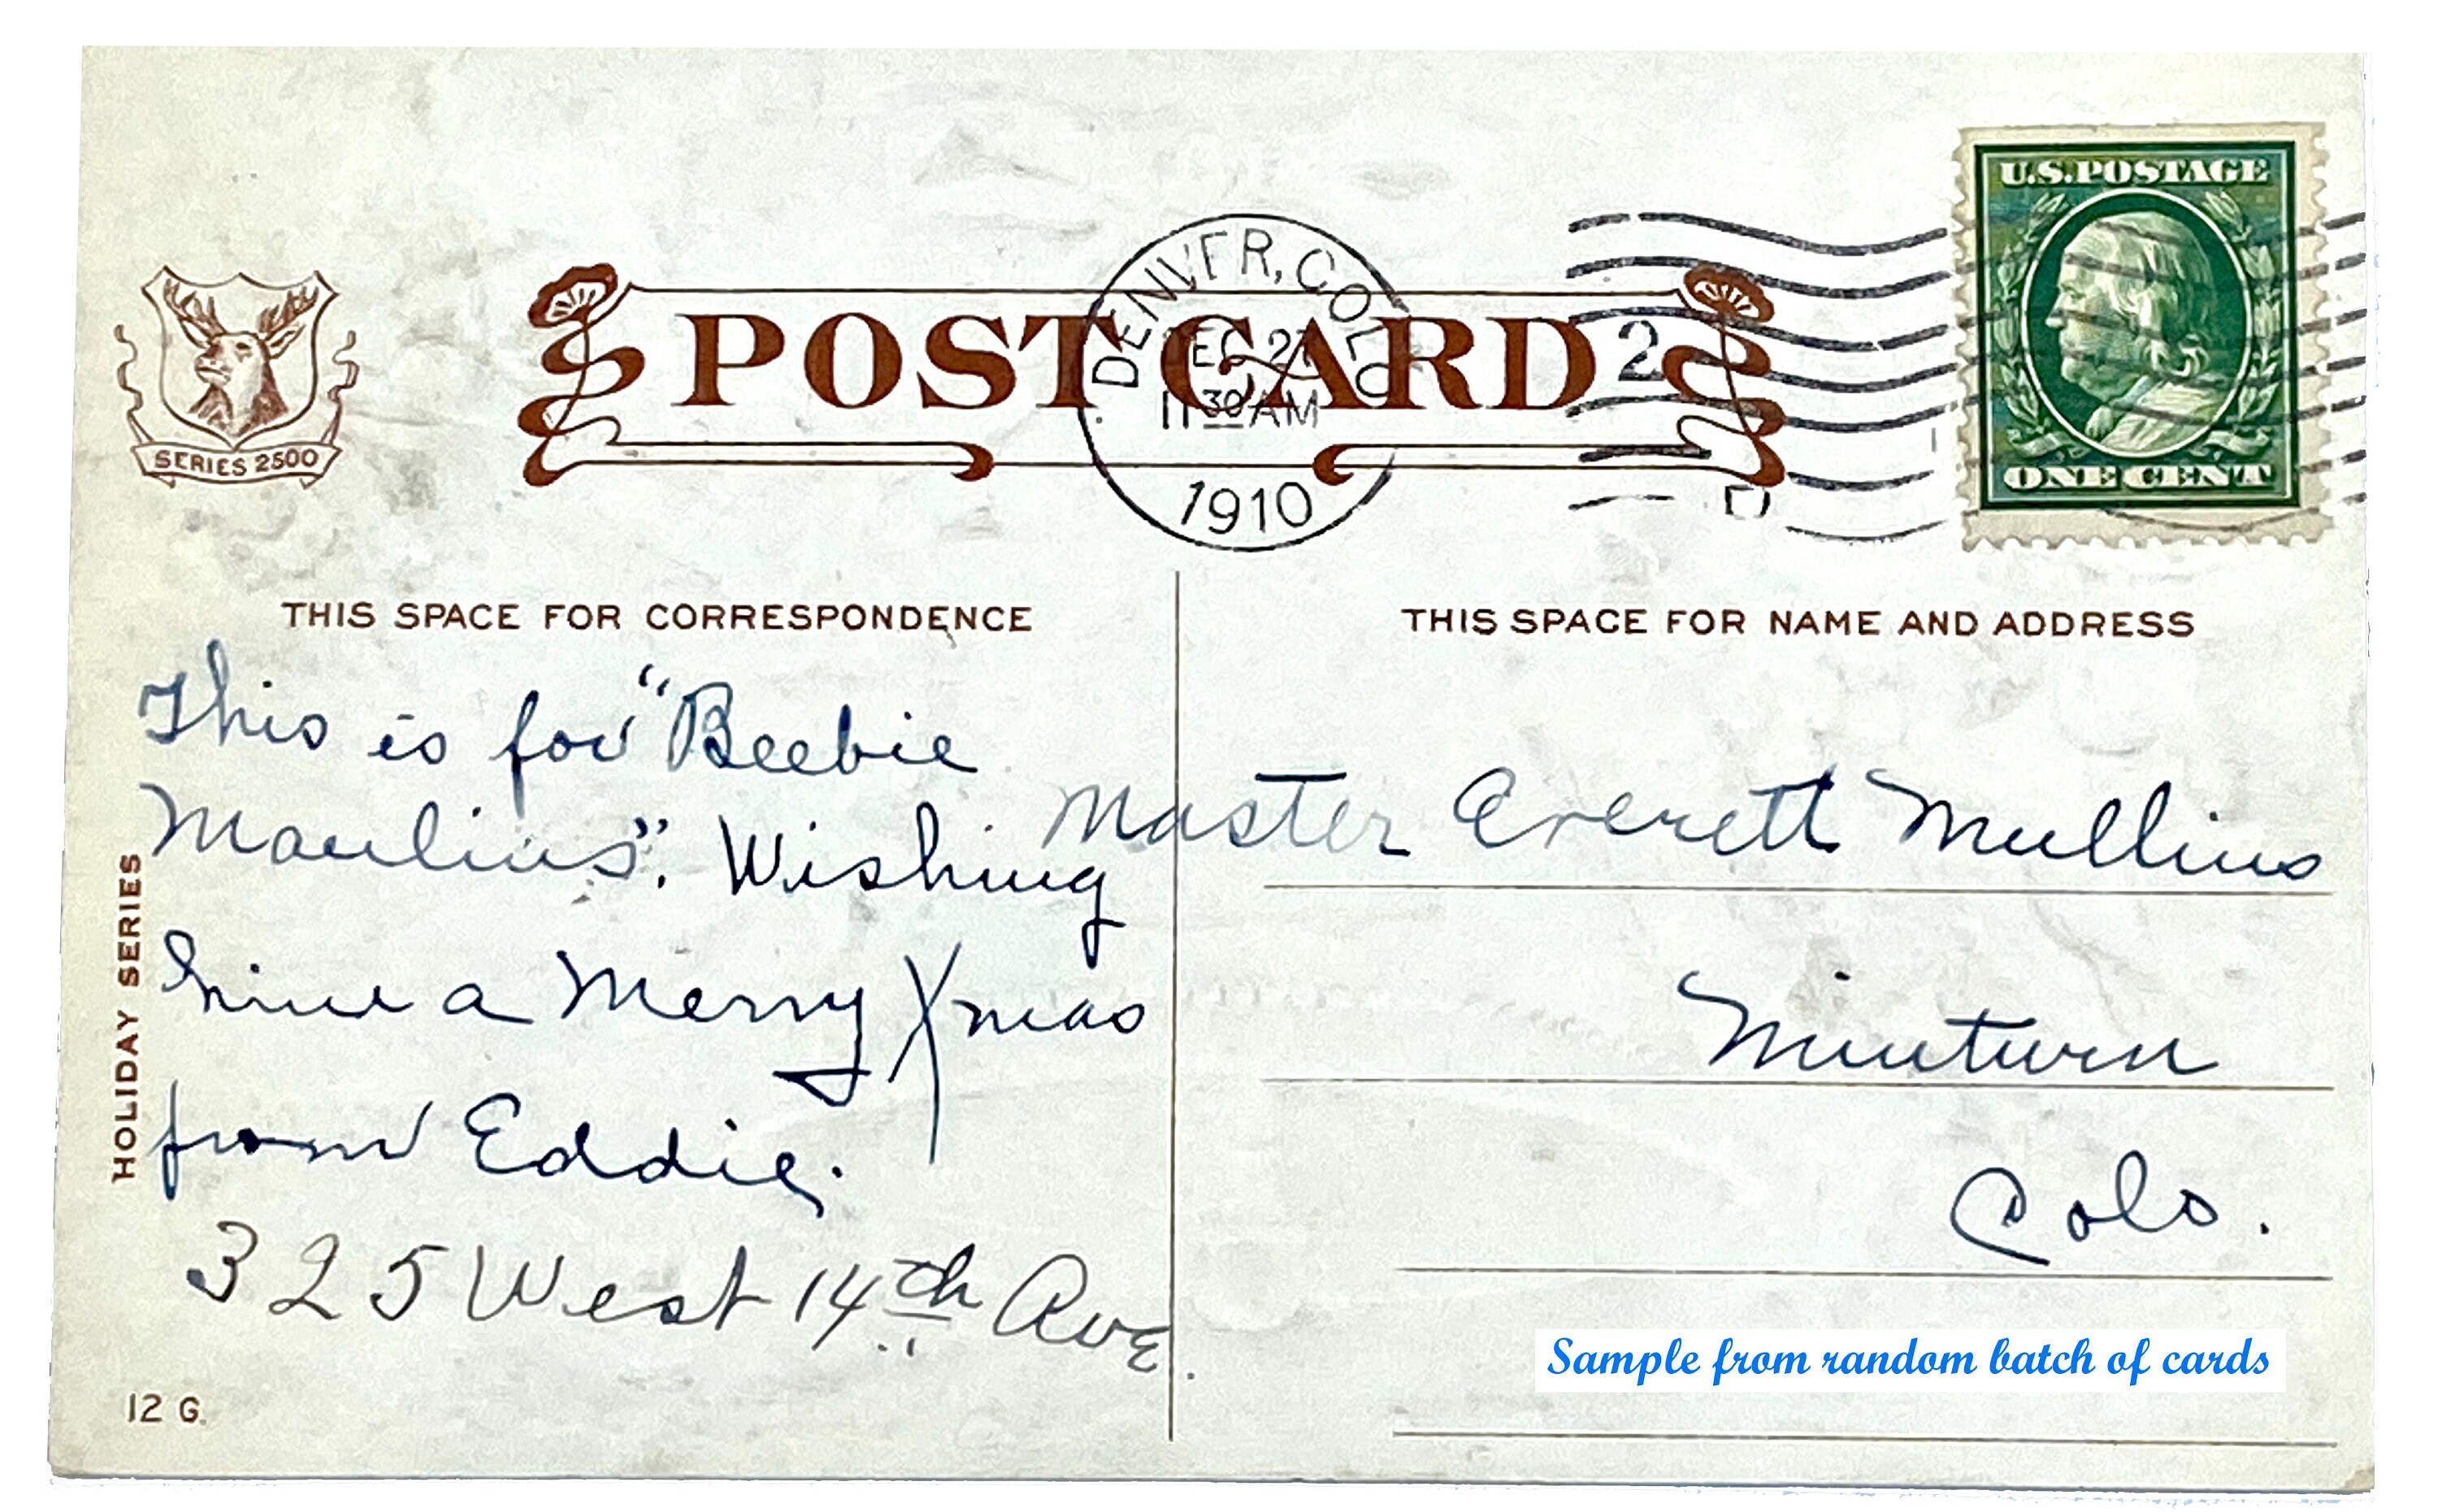 U.S. POSTAGE
ONE CENT
DENVER, COLO
DEC 21
11 30 AM
1910
POST CARD
2
SERIES 2500
THIS SPACE FOR CORRESPONDENCE
This is for "Beebie
Maulins". Wishing
him a Merry Xmas
from Eddie.
325 West 14th Ave.
HOLIDAY SERIES
12 G.
THIS SPACE FOR NAME AND ADDRESS
Master Everett Mullins
Minturn
Colo.
Sample from random batch of cards